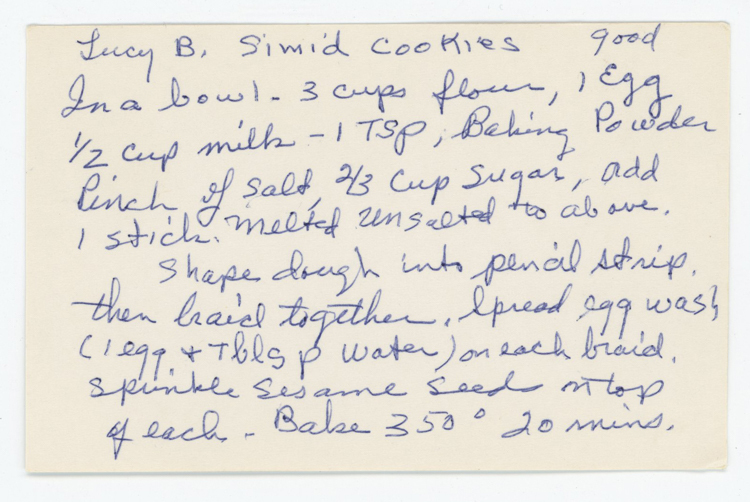 Lucy B. Simid Cookies good
In a bowl - 3 cups flour, 1 Egg
1/2 cup milk - 1 TSP, Baking Powder
Pinch of salt, 2/3 Cup Sugar, add
1 stick. Melted Unsalted to above.
Shape dough into pencil strip.
then braid together. Spread egg wash
(1 egg + Tblsp water) on each braid.
Sprinkle Sesame Seeds on top
of each - Bake 350° 20 mins.